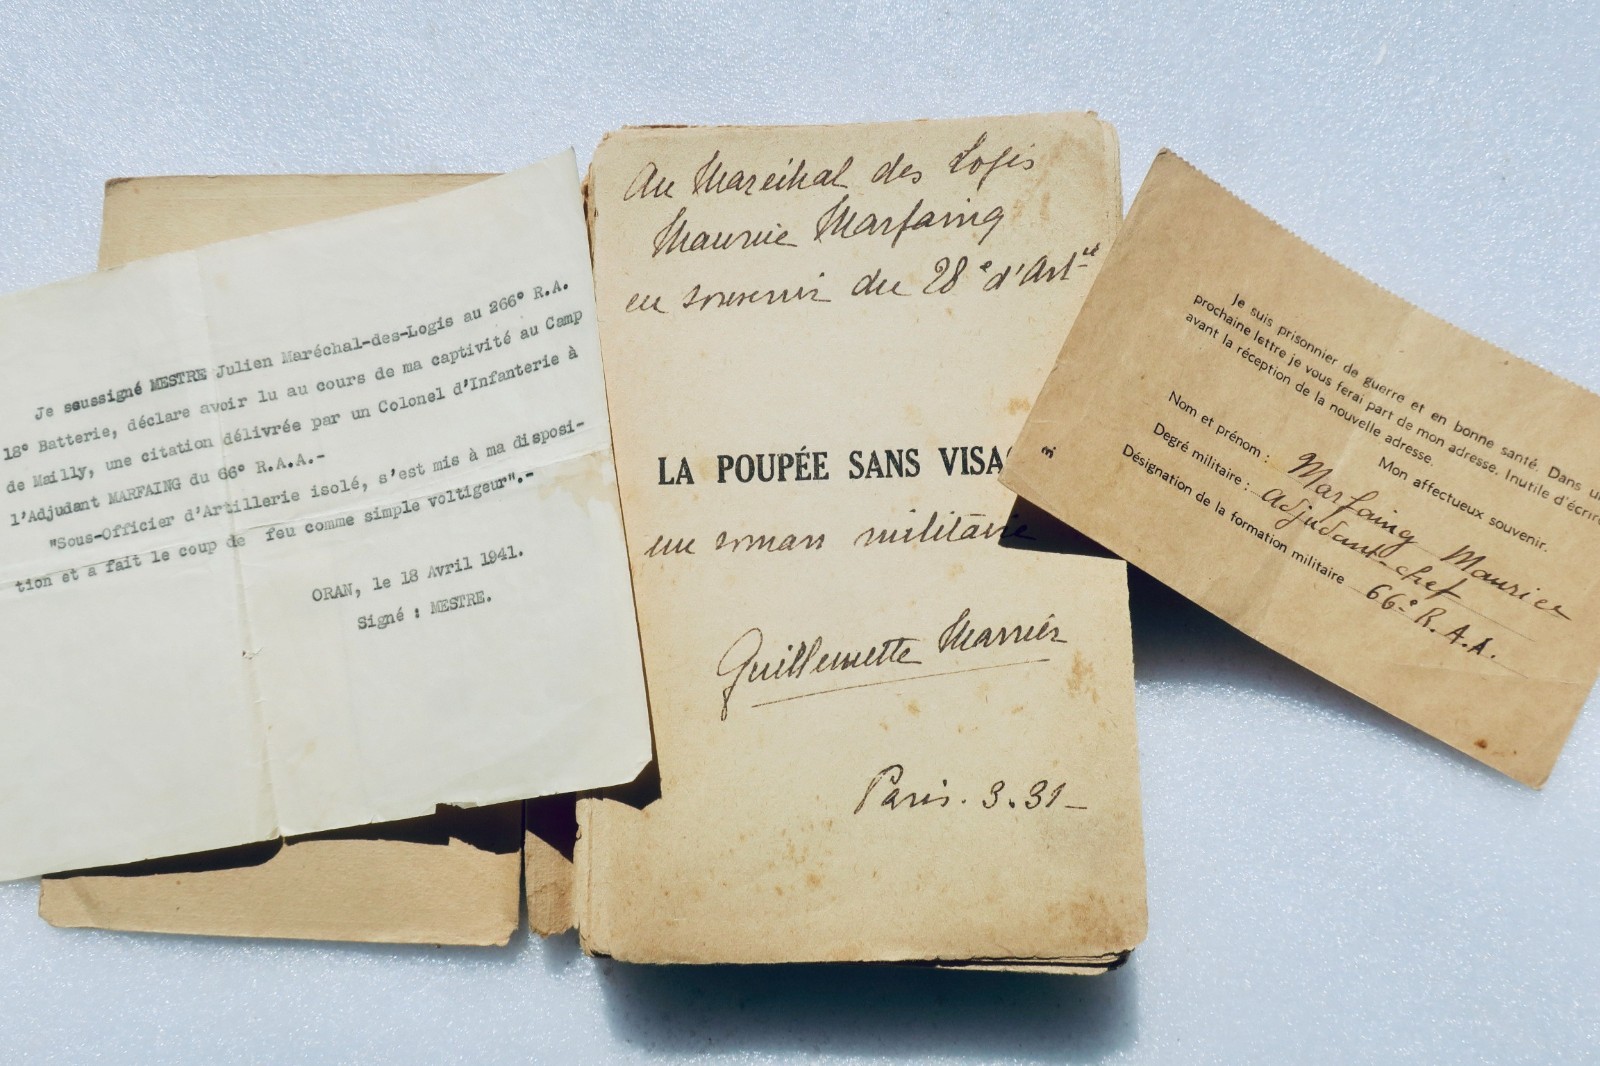 Je soussigné MESTRE Julien Maréchal-des-Logis au 266° R.A.
18° Batterie, déclare avoir lu au cours de ma captivité au Camp
de Mailly, une citation délivrée par un Colonel d'Infanterie à
l'Adjudant MARFAING du 66° R.A.A.-
"Sous-Officier d'Artillerie isolé, s'est mis à ma disposi-
tion et a fait le coup de feu comme simple voltigeur".-
ORAN, le 18 Avril 1941.
Signé : MESTRE.
Au Maréchal des Logis
Maurice Marfaing
en souvenir du 28e d'Artie
LA POUPÉE SANS VISA
un roman militaire
Guillemette Marrier
Paris. 3.31-
Je suis prisonnier de guerre et en bonne santé. Dans un
prochaine lettre je vous ferai part de mon adresse. Inutile d'écrire
avant la réception de la nouvelle adresse.
Mon affectueux souvenir.
Nom et prénom : Marfaing Maurice
Degré militaire : Adjudant-chef
Désignation de la formation militaire 66e R.A.A.
3.